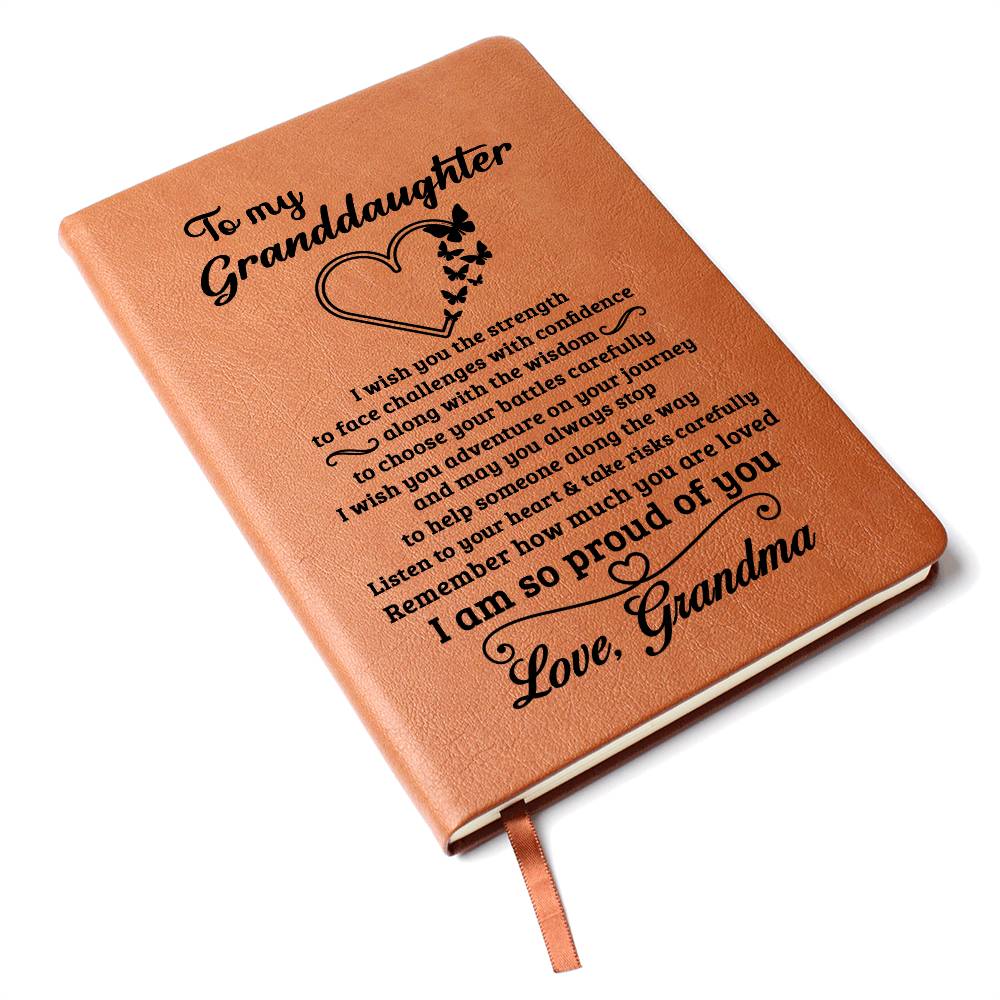 To my
Granddaughter
I wish you the strength
to face challenges with confidence
along with the wisdom
to choose your battles carefully
I wish you adventure on your journey
and may you always stop
to help someone along the way
Listen to your heart & take risks carefully
Remember how much you are loved
I am so proud of you
Love, Grandma